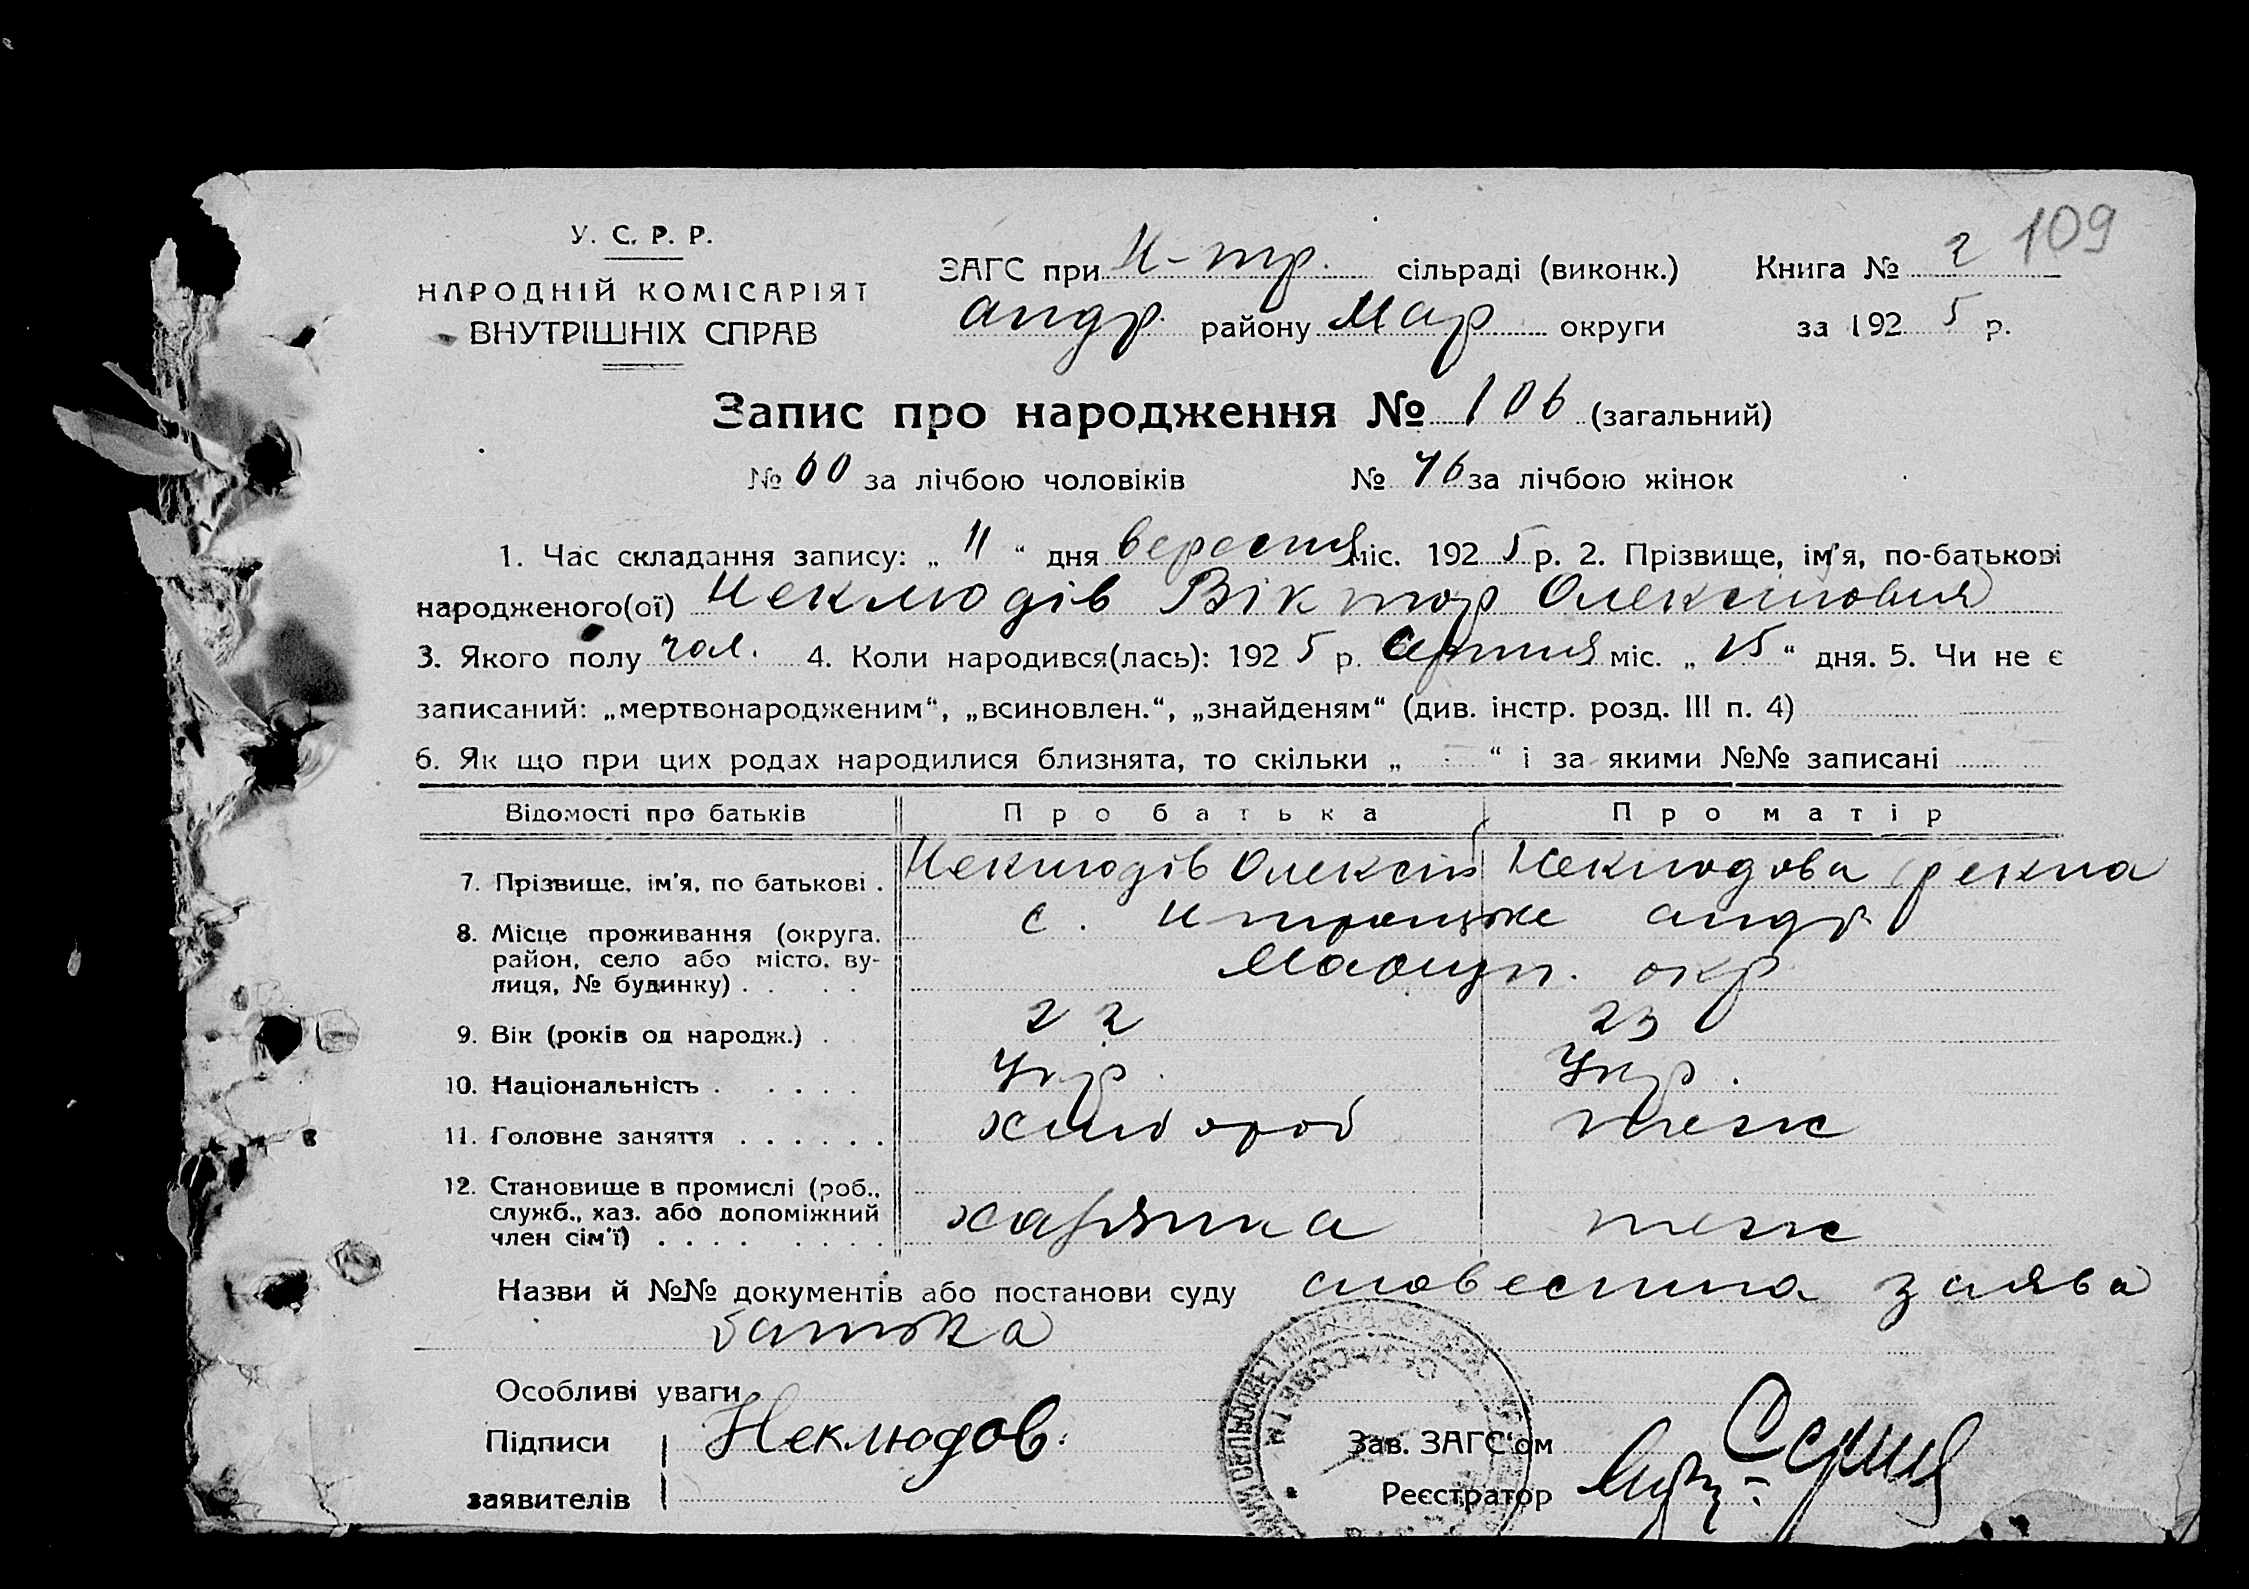 109
У. С. Р. Р.
НАРОДНІЙ КОМІСАРІЯТ
ВНУТРІШНІХ СПРАВ
ЗАГС при Н-тр. сільраді (виконк.) Книга № 2
андр. району Мар округи за 1925 р.
Запис про народження № 106 (загальний)
№ 60 за лічбою чоловіків № 46 за лічбою жінок
1. Час складання запису: „ 11 “ дня вересня міс. 1925 р. 2. Прізвище, ім'я, по-батькові
народженого(ої) Неклюдів Віктор Олексійович
3. Якого полу чол. 4. Коли народився(лась): 1925 р. серпня міс. „ 15 “ дня. 5. Чи не є
записаний: „мертвонародженим“, „всиновлен.“, „знайденям“ (див. інстр. розд. III п. 4)
6. Як що при цих родах народилися близнята, то скільки „ - “ і за якими №№ записані
Відомості про батьків Про батька Про матір
7. Прізвище, ім'я, по батькові . Неклюдів Олексій Неклюдова Фекла
8. Місце проживання (округа, с. Н троицьке андр
район, село або місто, ву- Маріуп. окр
лиця, № будинку) . . . .
9. Вік (років од народж.) . 22 23
10. Національність . . . . . Укр. Укр.
11. Головне заняття . . . . . . хлібороб теж
12. Становище в промислі (роб.,
служб., хаз. або допоміжний хазяїна теж
член сім'ї) . . . . . . . .
Назви й №№ документів або постанови суду словесна заява
батька
Особливі уваги
Підписи Неклюдов. Зав. ЗАГС'ом
заявителів Реєстратор